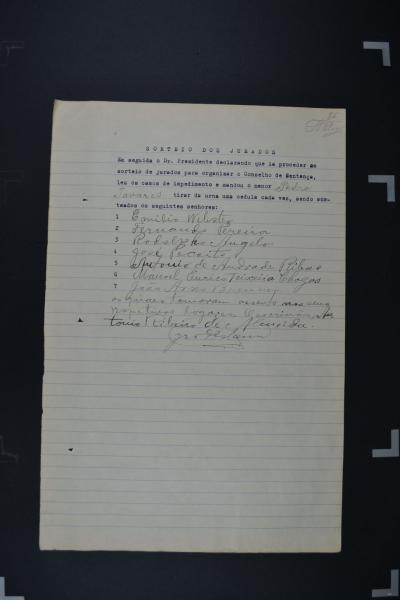 SORTEIO DOS JURADOS
Em seguida o Dr. Presidente declarando que ia proceder ao
sorteio de jurados para organizar o Conselho de Sentença,
leu os casos de impedimento e mandou o menor Pedro
Tavares tirar da urna uma cedula cada vez, sendo sor-
teados os seguintes senhores:
1 Emilio
2 Fernando Pereira
3 Angelo
4 José
5 Antonio de Andrade Ribas
6 Manoel Eurico Teixeira Chagas
7 João
os quaes tomaram assento nos seus
respectivos logares. Escrivão, An-
tonio Ribeiro de Almeida.